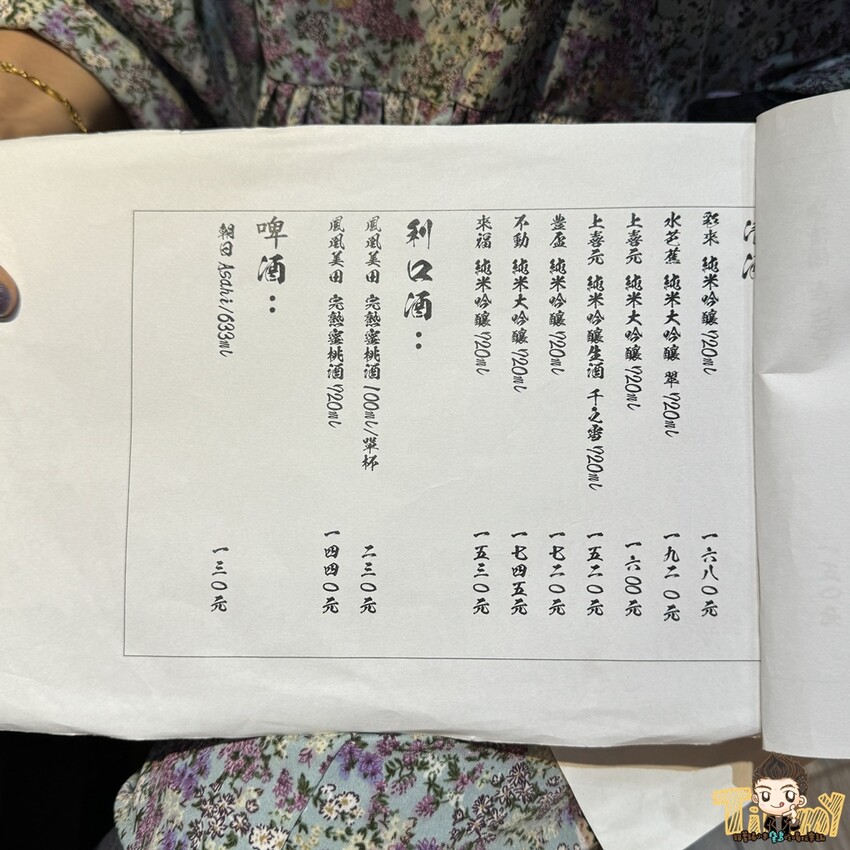 清酒
彩來 純米吟釀 720ml 一六八0元
水芭蕉 純米大吟釀 翠 720ml 一九二0元
上喜元 純米大吟釀 720ml 一六00元
上喜元 純米吟釀生酒 千之雪 720ml 一五二0元
豊盃 純米吟釀 720ml 一七二0元
不動 純米大吟釀 720ml 一七四五元
來福 純米吟釀 720ml 一五三0元
利口酒：
鳳凰美田 完熟蜜桃酒 100ml/單杯 二三0元
鳳凰美田 完熟蜜桃酒 720ml 一四四0元
啤酒：
朝日 Asahi/633ml 一三0元
TiMMY